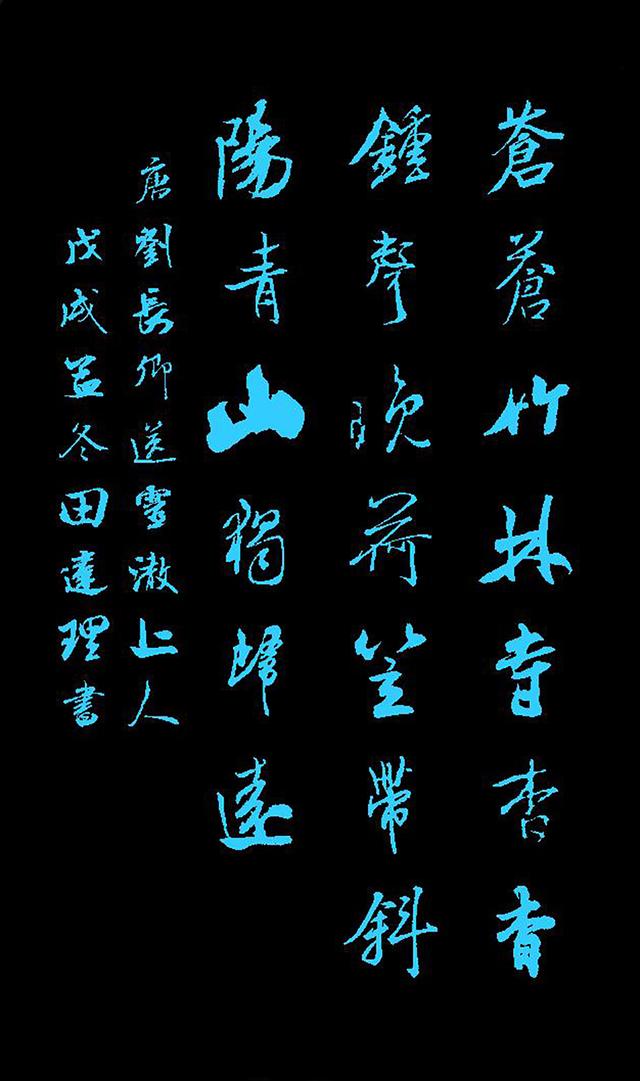 蒼蒼竹林寺杳杳
鍾聲晚荷笠帶斜
陽青山獨歸遠
唐劉長卿送靈澈上人
戊戌孟冬田達理書